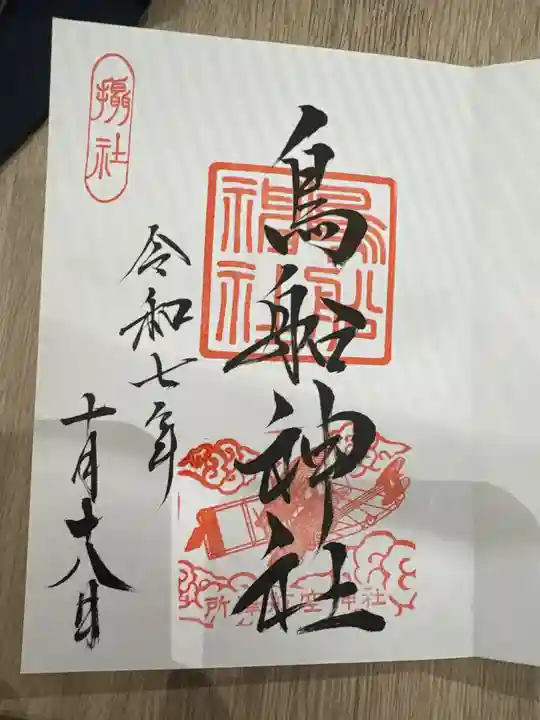 鳥船神社
鳥船神社
所澤航空神社
令和七年
十月十八日
攝社